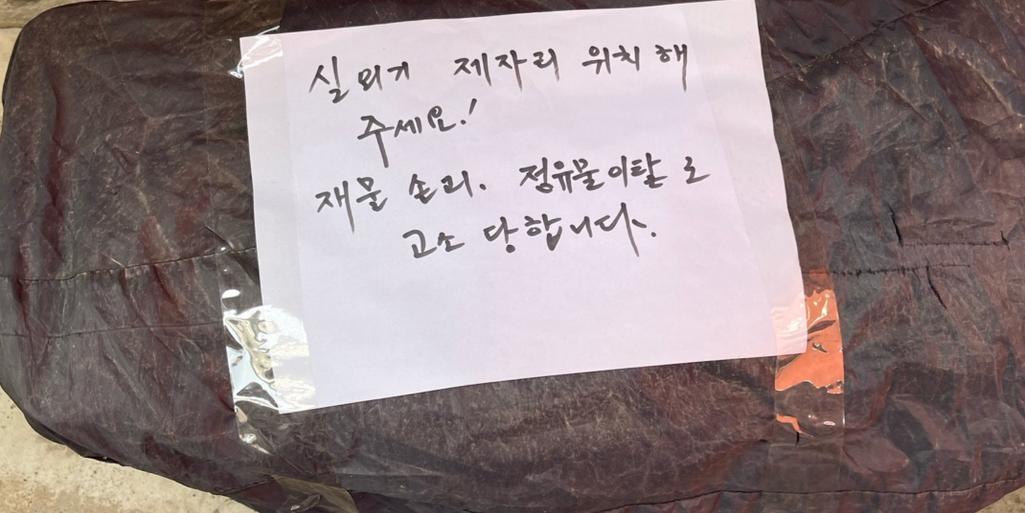 실외기 제자리 위치해
주세요!
재물 손괴. 점유물이탈로
고소 당합니다.